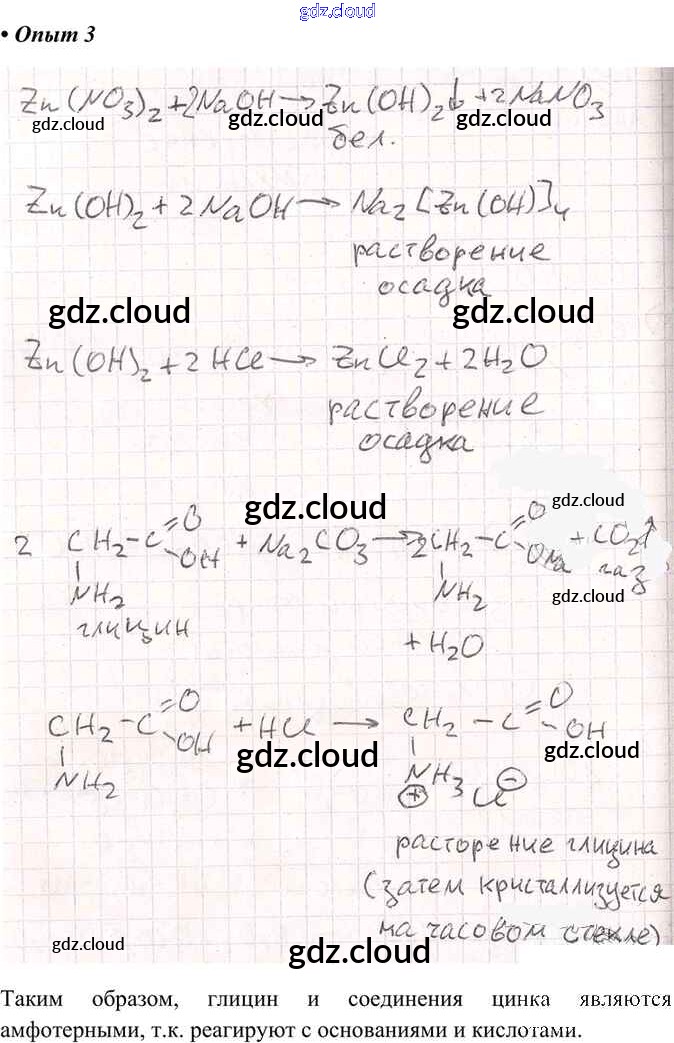 gdz.cloud
• Опыт 3
Zn(NO3)2 + 2NaOH → Zn(OH)2↓ + 2NaNO3
gdz.cloud gdz.cloud gdz.cloud
бел.
Zn(OH)2 + 2NaOH → Na2[Zn(OH)]4
растворение
осадка
gdz.cloud gdz.cloud
Zn(OH)2 + 2HCl → ZnCl2 + 2H2O
растворение
осадка
gdz.cloud gdz.cloud
2 CH2-C=O OH + Na2CO3 → 2CH2-C=O ONa + CO2↑
газ
NH2 NH2
gdz.cloud
глицин
+ H2O
gdz.cloud gdz.cloud
CH2-C=O OH + HCl → CH2-C=O OH
gdz.cloud gdz.cloud gdz.cloud
NH2 NH3 Cl
+ −
расторение глицина
(затем кристаллизуется
на часовом стекле)
gdz.cloud gdz.cloud
Таким образом, глицин и соединения цинка являются
амфотерными, т.к. реагируют с основаниями и кислотами.